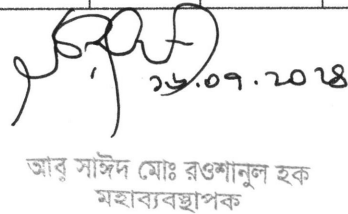 ১৬.০৭.২০২৪
আবু সাঈদ মোঃ রওশানুল হক
মহাব্যবস্থাপক